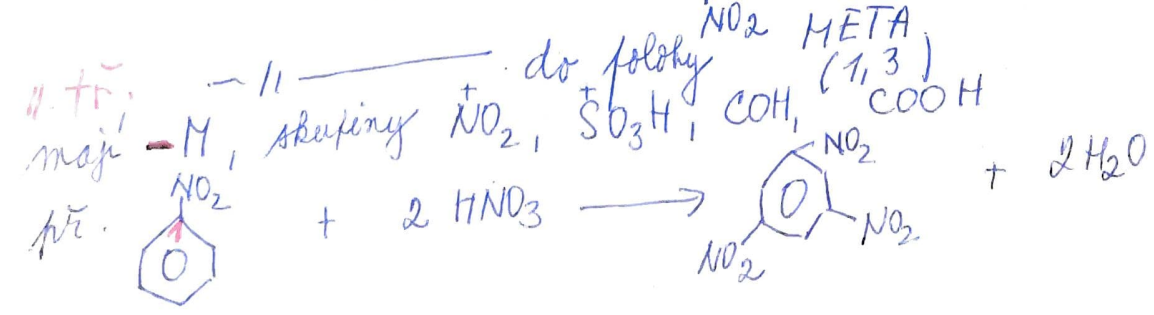 II. tř. — // — do polohy META (1,3)
mají -M, skupiny NO2, SO3H, COH, COOH
NO2
př. NO2 + 2 HNO3 → NO2 NO2 NO2 + 2H2O